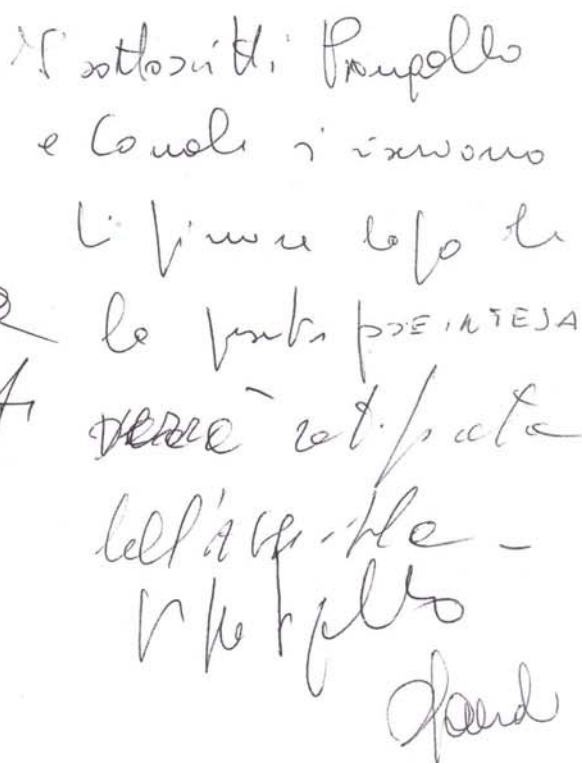 I sottoscritti Prampollo
e Conole si riservano
di firmare dopo che
la presente PREINTESA
VERRÀ ratificata
dall'Assemblea -